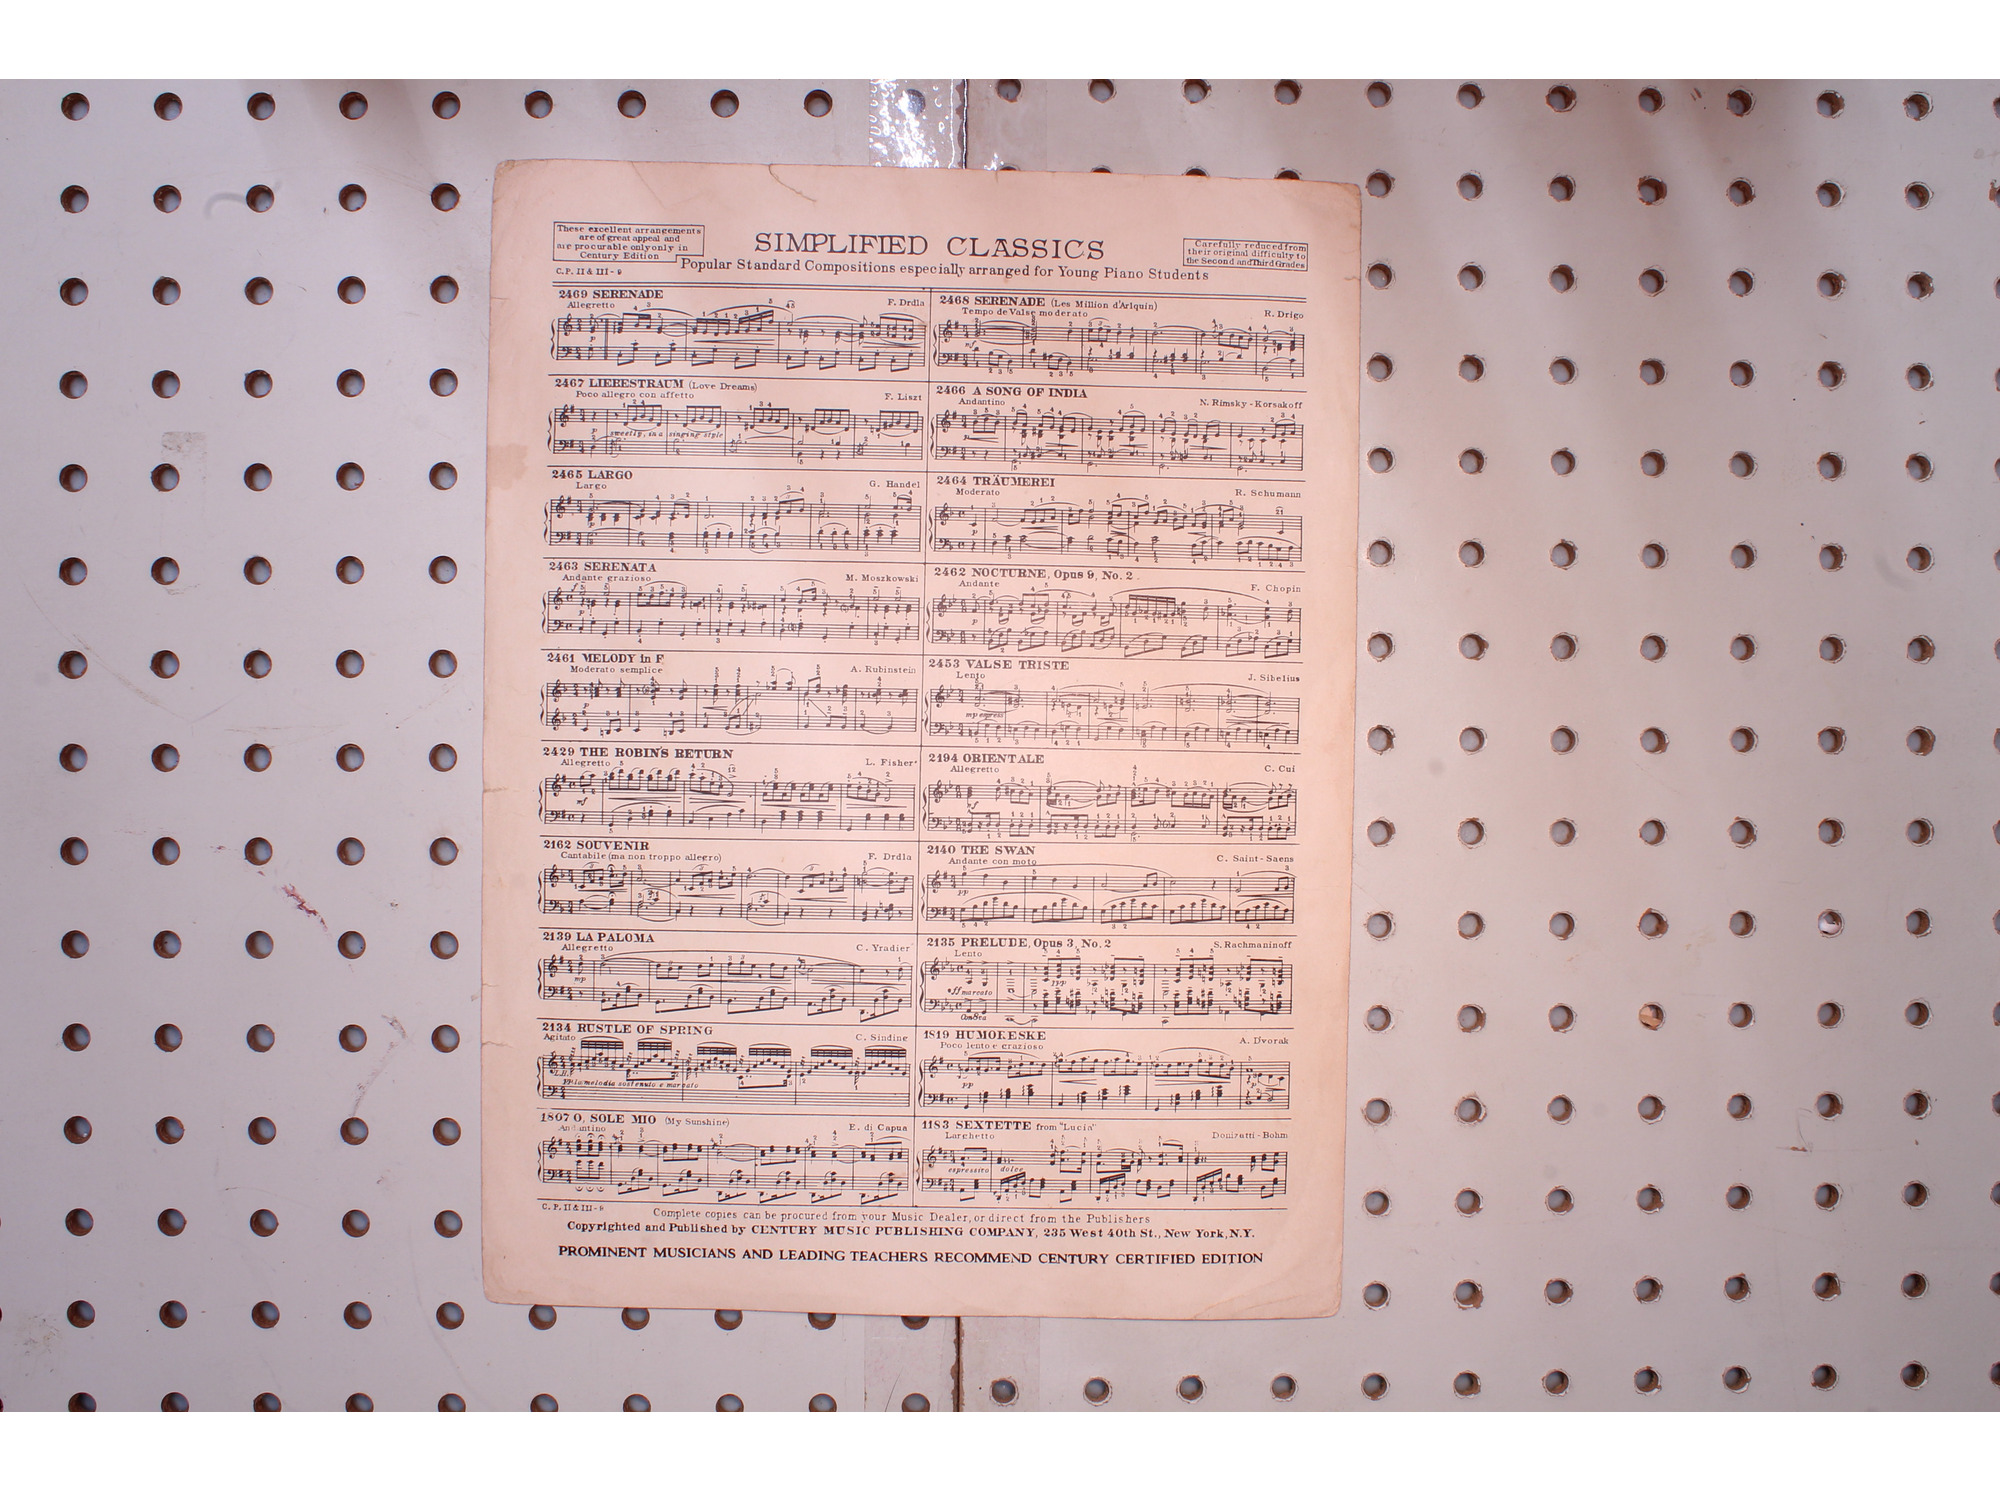 These excellent arrangements
are of great appeal and
are procurable onlyonly in
Century Edition
C.P. II & III - 9
SIMPLIFIED CLASSICS
Popular Standard Compositions especially arranged for Young Piano Students
Carefully reduced from
their original difficulty to
the Second and Third Grades
2469 SERENADE
Allegretto
F. Drdla
2468 SERENADE (Les Million d'Arlquin)
Tempo de Valse moderato
R. Drigo
mf
2467 LIEBESTRAUM (Love Dreams)
Poco allegro con affetto
F. Liszt
p sweetly, in a singing style
2466 A SONG OF INDIA
Andantino
N. Rimsky - Korsakoff
p
2465 LARGO
Largo
G. Handel
p
2464 TRÄUMEREI
Moderato
R. Schumann
p
2463 SERENATA
Andante grazioso
M. Moszkowski
p
2462 NOCTURNE, Opus 9, No. 2
Andante
F. Chopin
p
2461 MELODY in F
Moderato semplice
A. Rubinstein
p
2453 VALSE TRISTE
Lento
J. Sibelius
mp espress
2429 THE ROBIN'S RETURN
Allegretto
L. Fisher
mf
2194 ORIENTALE
Allegretto
C. Cui
mf
2162 SOUVENIR
Cantabile (ma non troppo allegro)
F. Drdla
2140 THE SWAN
Andante con moto
C. Saint - Saens
pp
2139 LA PALOMA
Allegretto
C. Yradier
mp
2135 PRELUDE, Opus 3, No. 2
Lento
S. Rachmaninoff
ff marcato
ppp
Con 8va
2134 RUSTLE OF SPRING
Agitato
C. Sindine
L.H.
pp la melodia sostenuto e marcato
1819 HUMORESKE
Poco lento e grazioso
A. Dvorak
pp
1807 O, SOLE MIO (My Sunshine)
Andantino
E. di Capua
1183 SEXTETTE from "Lucia"
Larghetto
Donizetti - Bohm
espressivo dolce
C. P. II & III - 9
Complete copies can be procured from your Music Dealer, or direct from the Publishers
Copyrighted and Published by CENTURY MUSIC PUBLISHING COMPANY, 235 West 40th St., New York, N.Y.
PROMINENT MUSICIANS AND LEADING TEACHERS RECOMMEND CENTURY CERTIFIED EDITION